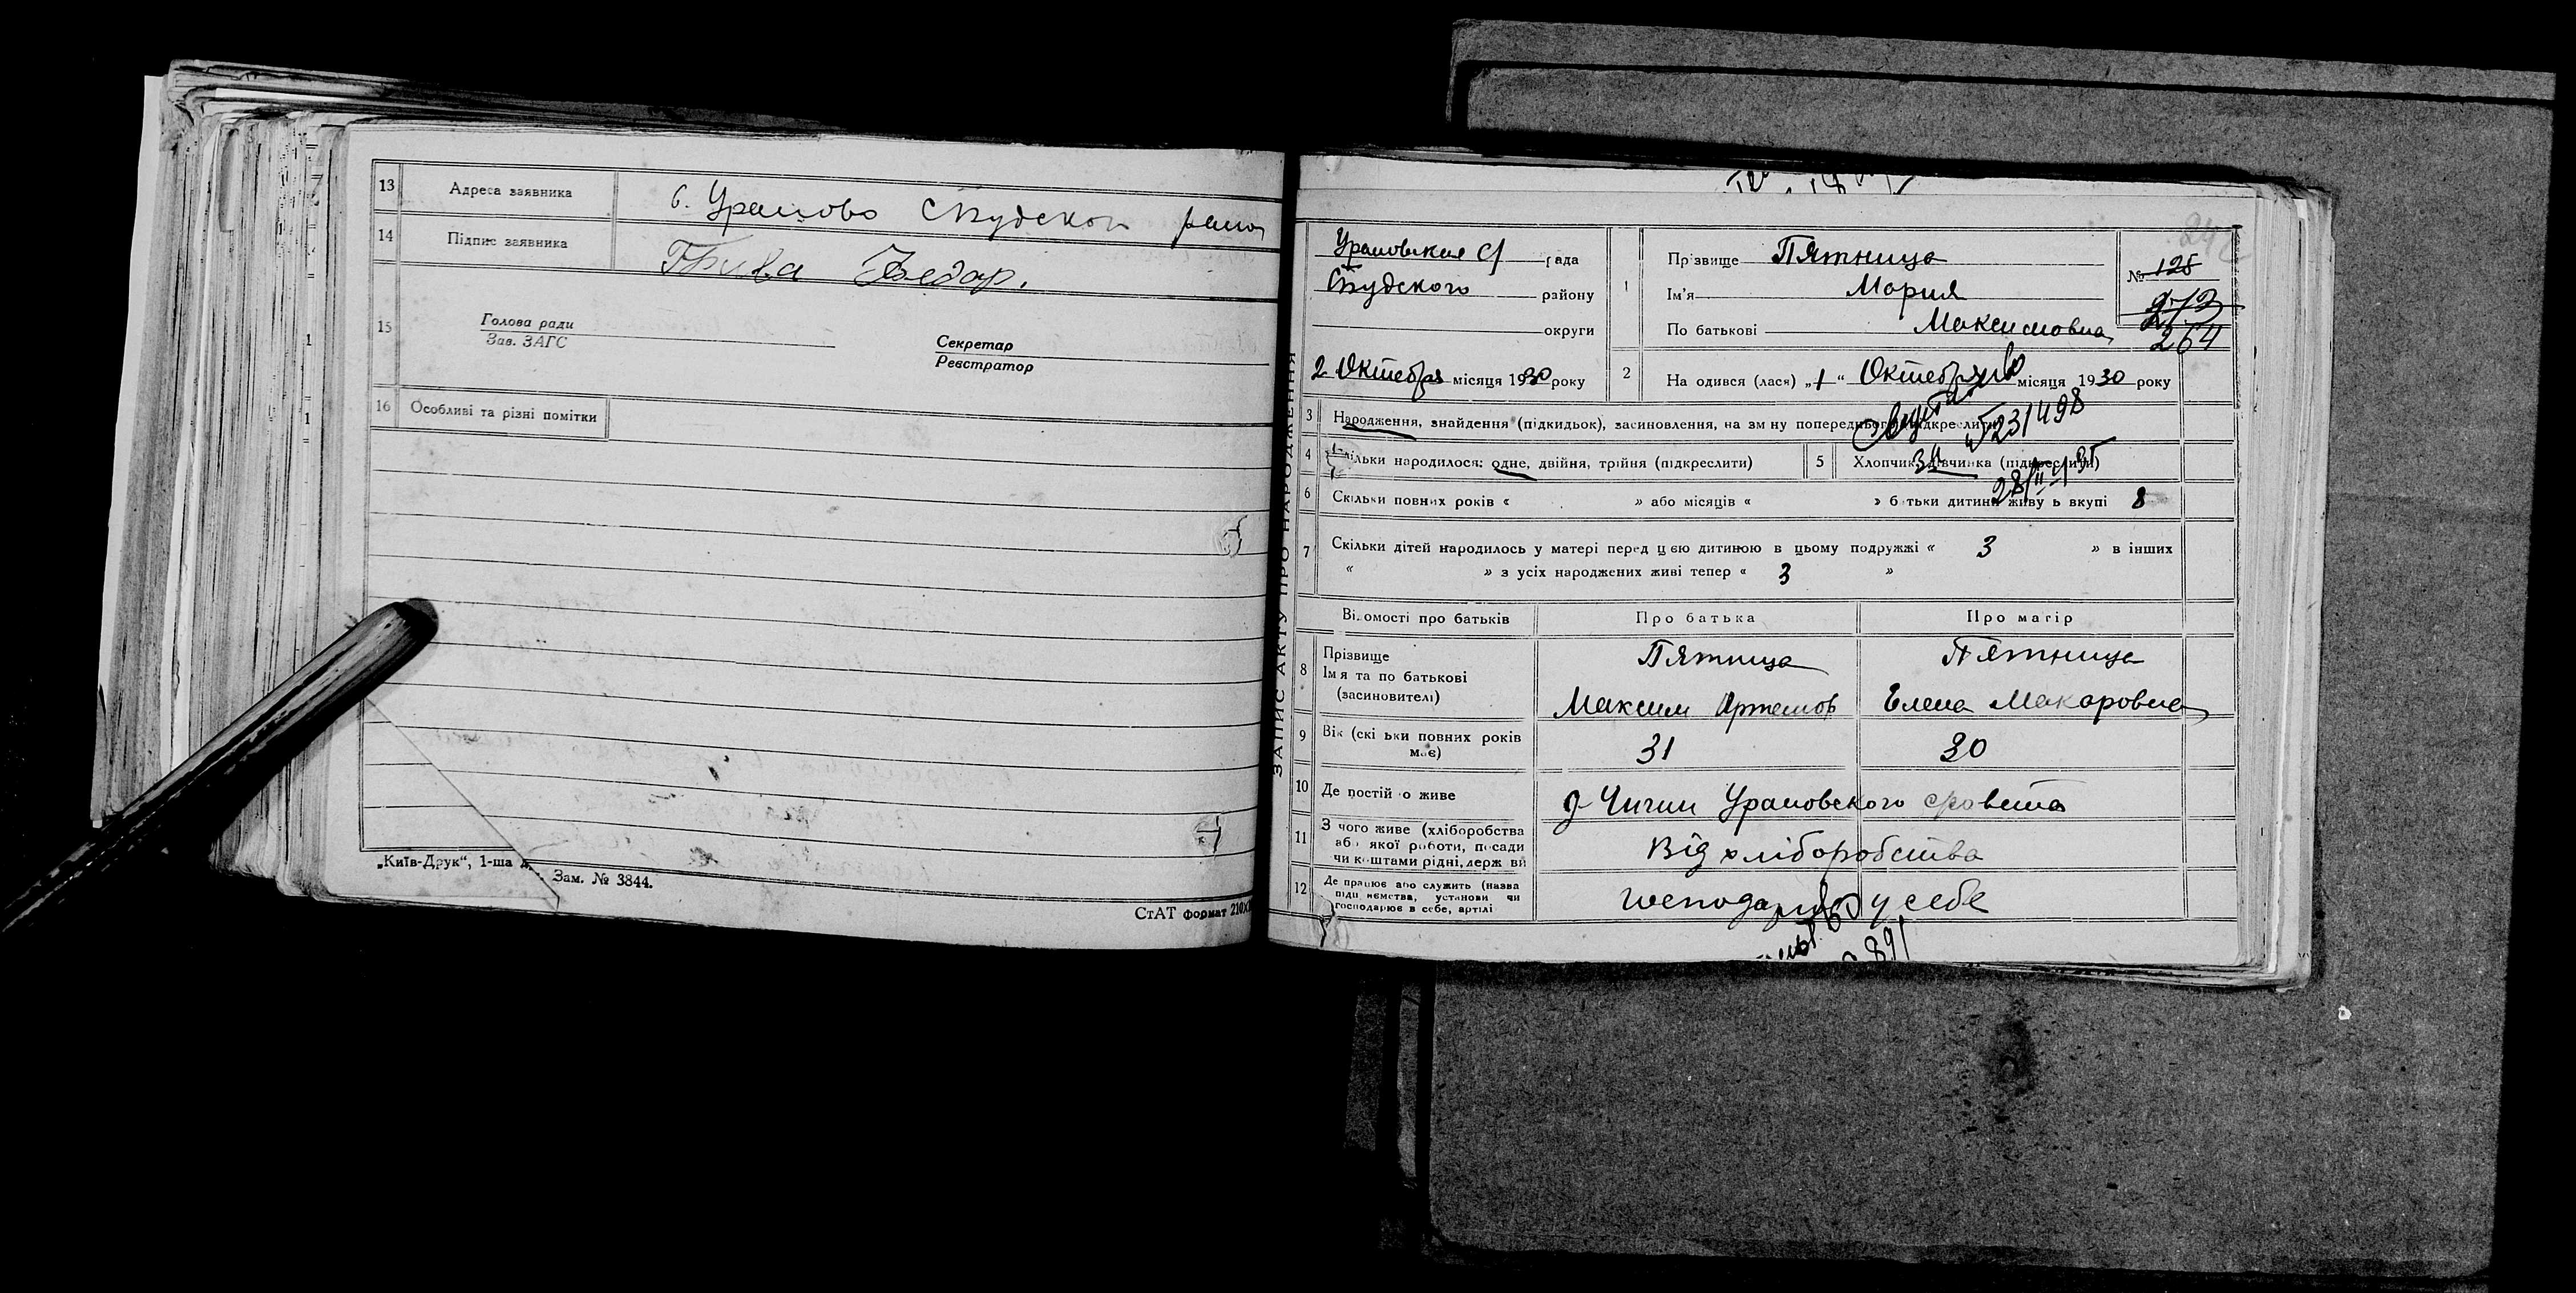 13 Адреса заявника с. Ураново Струдского району
14 Підпис заявника Грива Федор.
15 Голова ради
Зав. ЗАГС
Секретар
Реєстратор
16 Особливі та різні помітки
„Київ-Друк“, 1-ша Зам. № 3844.
СтАТ формат 210×
ЗАПИС АКТУ ПРО НАРОДЖЕННЯ
рада
району
округи
2 Октебря місяця 1930 року
1 Прізвище Пятница
Ім'я Мория
По батькові Максимовна
№ 125
264
2 На одився (лася) „1“ Октебря місяця 1930 року
3 Народження, знайдення (підкидьок), засиновлення, на зм ну попереднього (підкреслити)
№231498
4 Скільки народилося: одне, двійня, трійня (підкреслити)
5 Хлопчик, дівчинка (підкреслити)
6 Скільки повних років « » або місяців « » б тьки дитини живу ь вкупі 8
7 Скільки дітей народилось у матері перед цією дитиною в цьому подружжі « 3 » в інших
« » з усіх народжених живі тепер « 3 »
Відомості про батьків Про батька Про матір
8 Прізвище Пятница Пятница
Ім я та по батькові
(засиновителі) Максим Артемов Елена Макаровна
9 Вік (скі ьки повних років
має) 31 30
10 Де постій о живе
11 З чого живе (хліборобства
або якої роботи, посади
чи коштами рідні, держ ви Від хліборобства
12 Де працює або служить (назва
підп иємства, установи чи
господарює в себе, артілі у себе